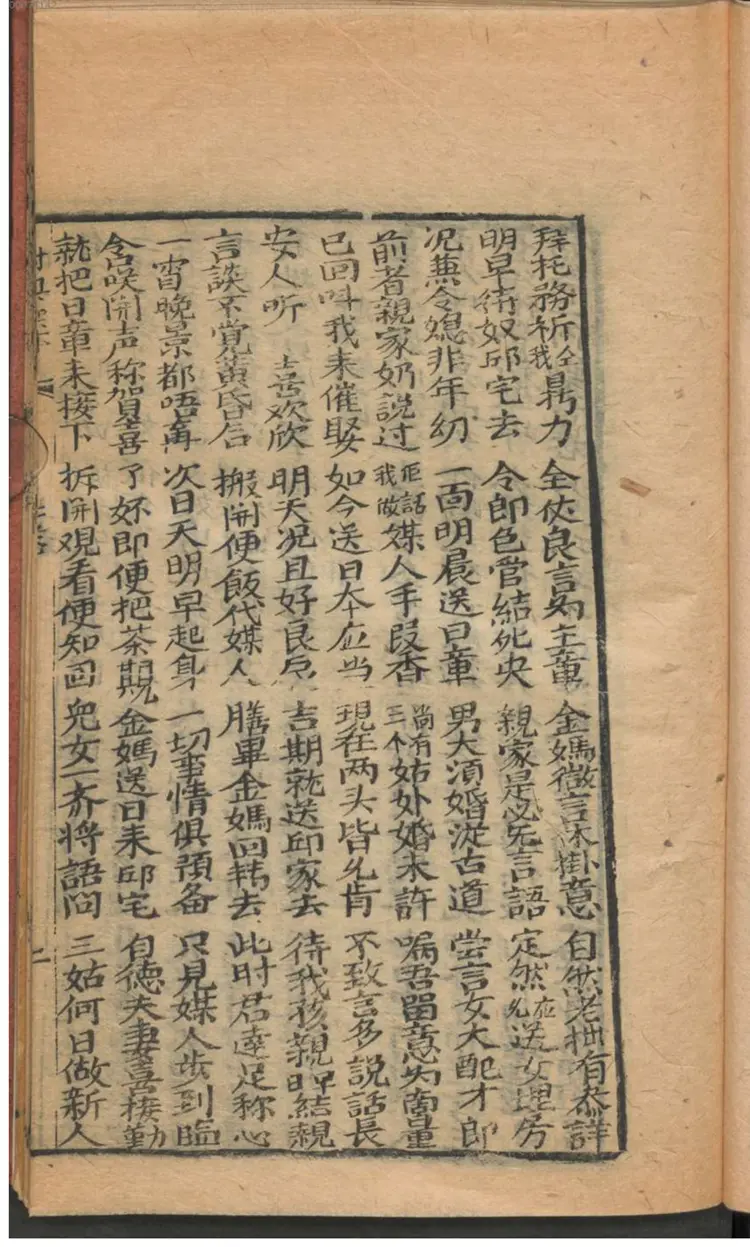 拜托務祈仝我鼎力 全仗良言為主章 金媽微言休掛意 自然老拙有叅詳
明早待奴邱宅去 令郎色管結死央 親家是必无言語 定然应允送女埋房
况兼令媳非年幼 一面明晨送日章 男大湏婚從古道 尝言女大配才郎
前者親家奶說过 佢話我做媒人手段香 尚有三个姑处婚未許 嘱吾留意为啇量
已回呌我来催娶 如今送日夲应当 現在两头皆允肯 不致言多説話長
安人听 喜欢欣 明天况且好良辰 吉期就送邱家去 待我孩親早結親
言談不覚黄昏后 搬開便飯代媒人 膳畢金媽回转去 此时君逹足称心
一宵晚景都唔再 次日天明早起身 一切事情俱預备 只見媒人步到臨
含笑開声称賀喜 了妳即便把茶斟 金媽送日来邱宅 自德夫妻喜接勤
就把日章来接下 拆開观看便知因 兒女一齐將語问 三姑何日做新人